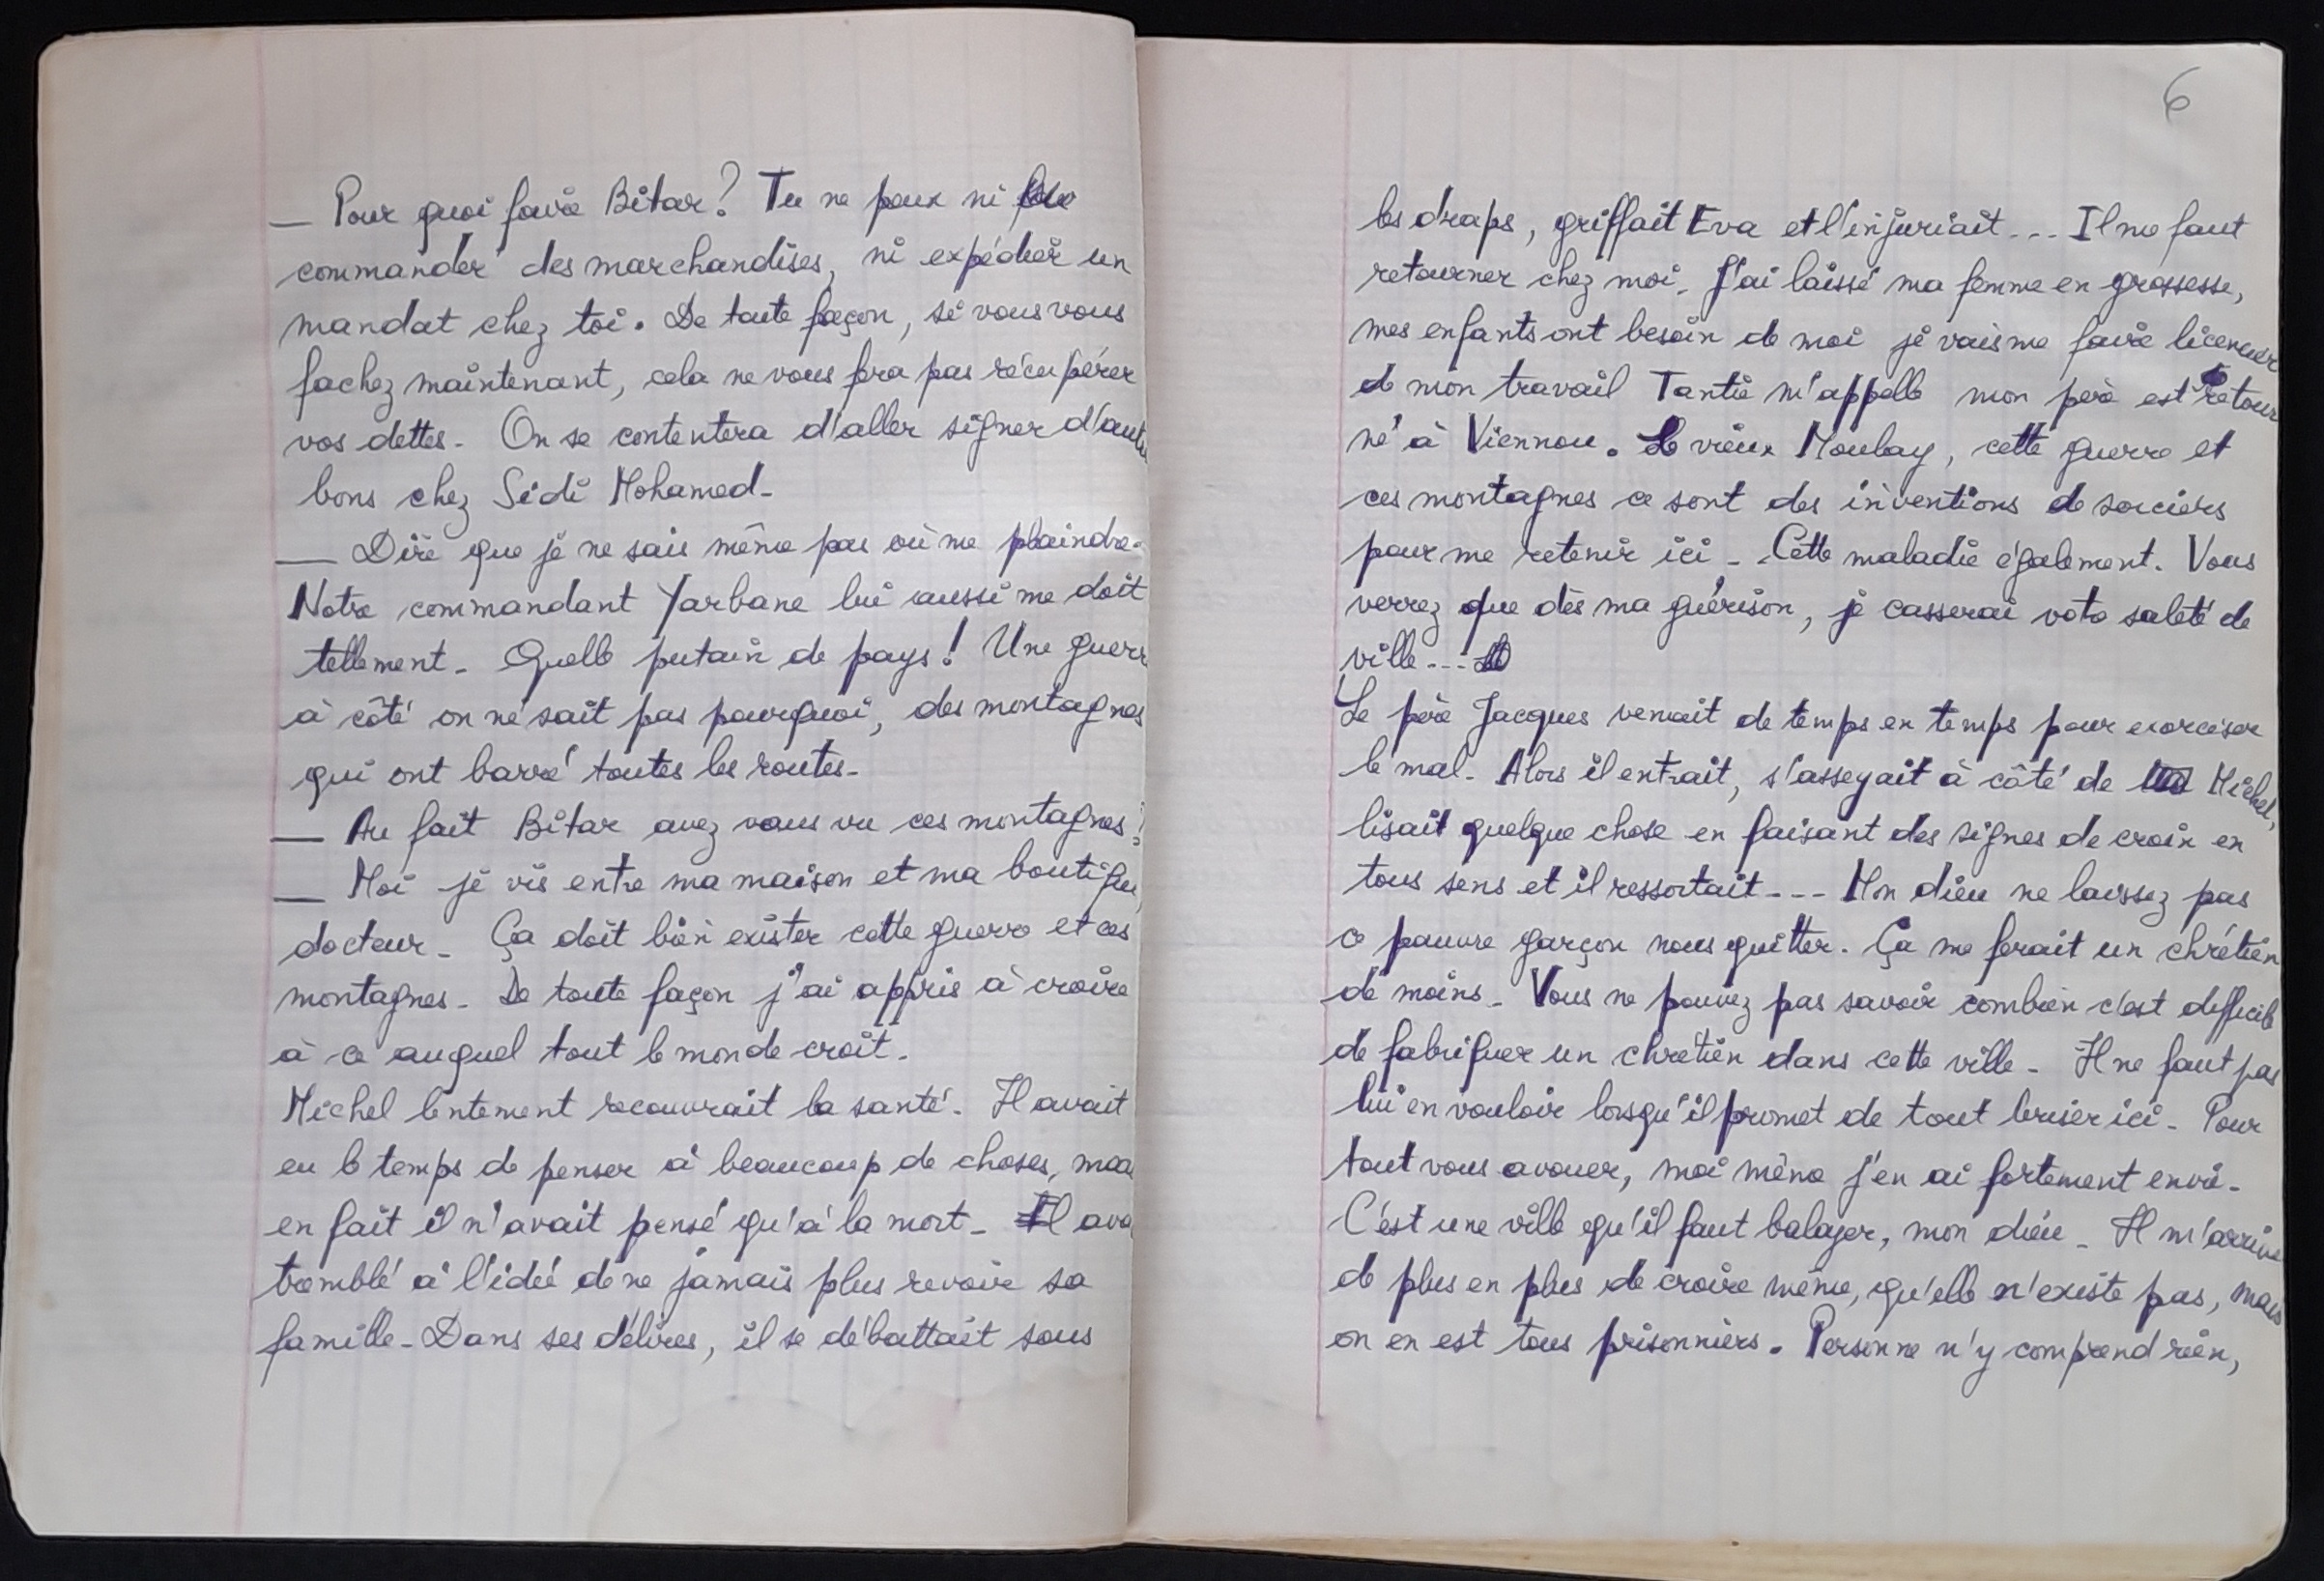 — Pour quoi faire Bitar? Tu ne peux ni
commander des marchandises, ni expédier un
mandat chez toi. De toute façon, si vous vous
fachez maintenant, cela ne vous fera pas récupérer
vos dettes. On se contentera d'aller signer d'aut
bons chez Sidi Mohamed.
— Dire que je ne sais même pas où me plaindre.
Notre commandant Yarbane lui aussi me doit
tellement. Quelle putain de pays! Une guerr
à côté on ne sait pas pourquoi, des montagnes
qui ont barré toutes les routes.
— Au fait Bitar avez vous vu ces montagnes?
— Moi je vis entre ma maison et ma boutique,
docteur. Ça doit bien exister cette guerre et ces
montagnes. De toute façon j'ai appris à croire
à ce auquel tout le monde croit.
Michel lentement recouvrait la santé. Il avait
eu le temps de penser à beaucoup de choses, mai
en fait il n'avait pensé qu'à la mort. Il ava
tremblé à l'idée de ne jamais plus revoir sa
famille. Dans ses délires, il se débattait sous
6
les draps, griffait Eva et l'injuriait... Il me faut
retourner chez moi. J'ai laissé ma femme en grossesse,
mes enfants ont besoin de moi je vais me faire licencier
de mon travail Tantie m'appelle mon père est retour
né à Viennou. Le vieux Moulay, cette guerre et
ces montagnes ce sont des inventions de sorciers
pour me retenir ici. Cette maladie également. Vous
verrez que dès ma guérison, je casserai vote saleté de
ville...
Le père Jacques venait de temps en temps pour exorciser
le mal. Alors il entrait, s'asseyait à côté de Michel,
lisait quelque chose en faisant des signes de croix en
tous sens et il ressortait... Mon dieu ne laissez pas
ce pauvre garçon nous quitter. Ça me ferait un chrétien
de moins. Vous ne pouvez pas savoir combien c'est difficile
de fabriquer un chrétien dans cette ville. Il ne faut pas
lui en vouloir lorsqu'il promet de tout briser ici. Pour
tout vous avouer, moi même j'en ai fortement envie.
C'est une ville qu'il faut balayer, mon dieu. Il m'arrive
de plus en plus de croire même, qu'elle n'existe pas, mais
on en est tous prisonniers. Personne n'y comprend rien,